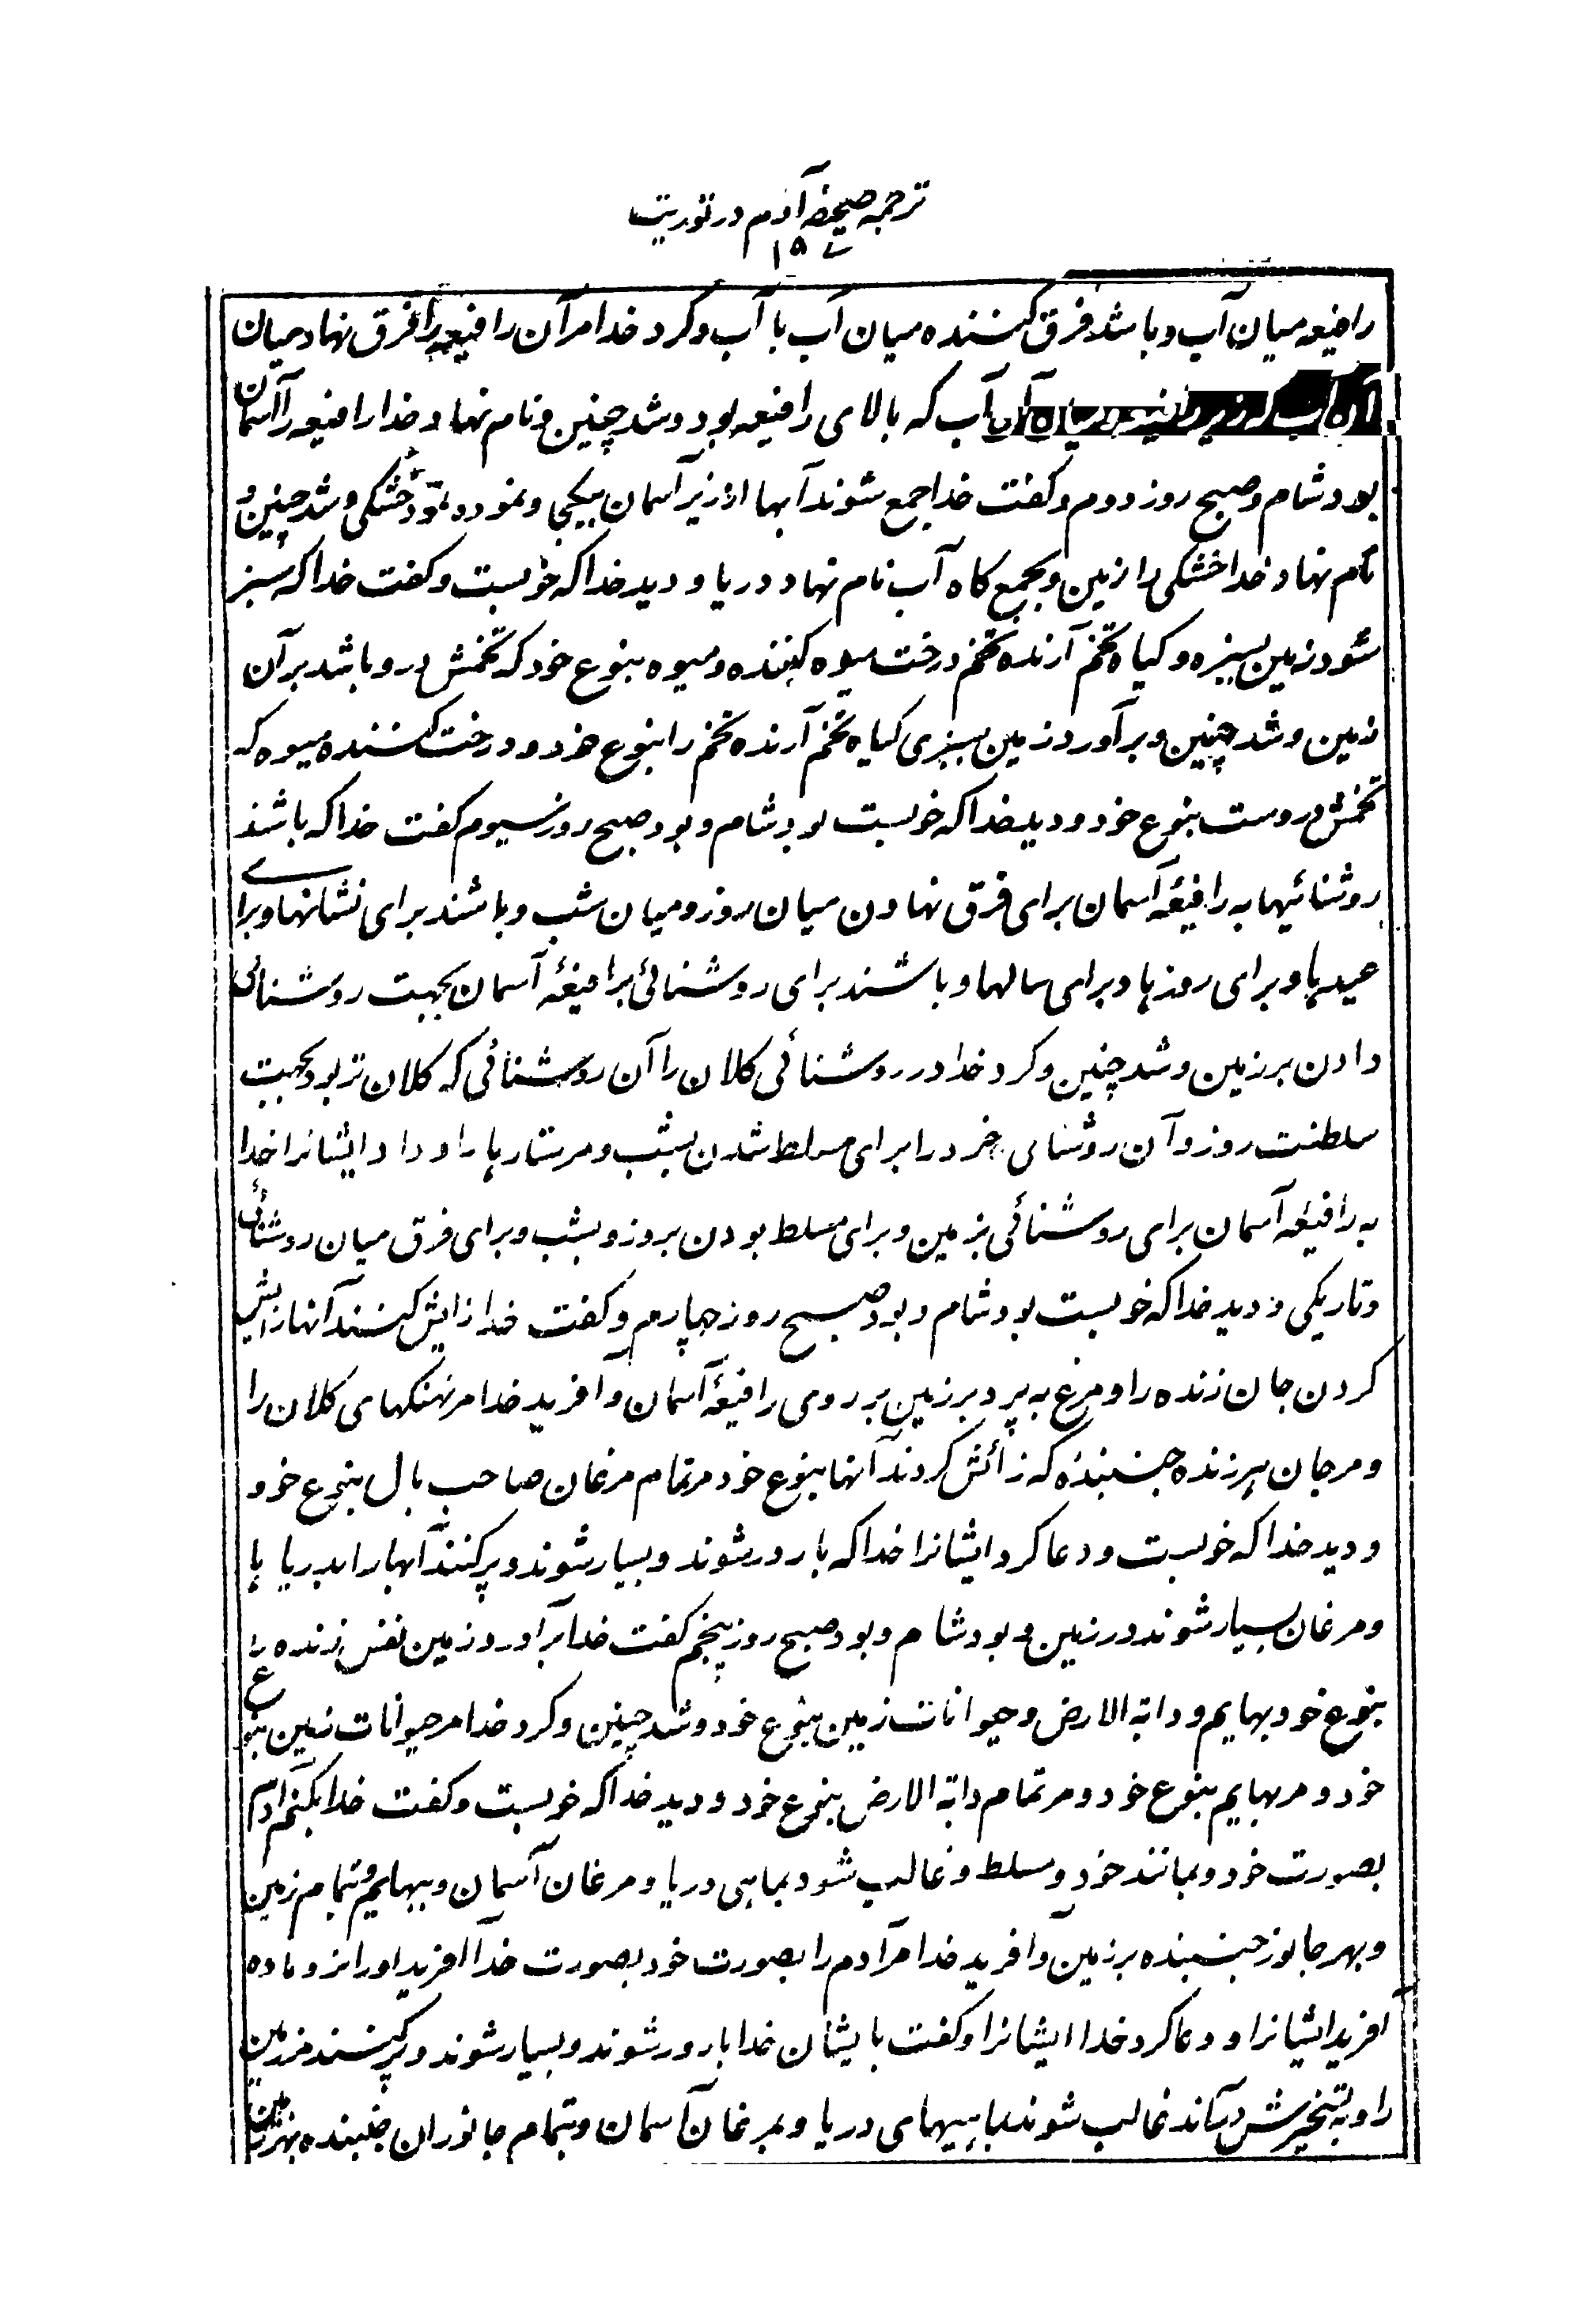 ترجمه صحیفه آدم در توریت
رافیعه میان آب و باشد فرق کننده میان آب با آب و کرد خدا مر آن رافیعه را فرق نهاد میان
آب که بالای رافیعه بود و شد چنین و نام نهاد خدا رافیعه را آسمان
بود شام و صبح روز دوم و کفت خدا جمع شوند آبها از زیر آسمان بیکجی و نموده شود خشکی و شد چنین و
نام نهاد خدا خشکی را زمین و مجمع کاه آب نام نهاد دریا و دید خدا که خوبست و کفت خدا که سبز
شود زمین بسبزه و کیاه تخم آرنده تخم درخت میوه کننده و میوه بنوع خود که تخمش درو باشد بر آن
زمین و شد چنین و بر آورد زمین سبزی کیاه تخم آرنده تخم را بنوع خود و درخت کننده میوه که
تخمش دروست بنوع خود و دید خدا که خوبست بود شام و بود صبح روز سیوم کفت خدا که باشند
روشنائیها به رافیعهٔ آسمان برای فرق نهادن میان روز و میان شب و باشند برای نشانها و برای
عیدها و برای روزها و برای سالها و باشند برای روشنائی برافیعهٔ آسمان بجهت روشنائی
دادن بر زمین و شد چنین و کرد خدا در روشنائی کلان را آن روشنائی که کلان تر بود بجهت
سلطنت روز و آن روشنای خرد را برای مسلط شدن بشب و مر ستارها را و داد ایشانرا خدا
به رافیعه آسمان برای روشنائی بزمین و برای مسلط بودن بروز و بشب و برای فرق میان روشنائی
و تاریکی و دید خدا که خوبست بود شام و بود صبح روز چهارم و کفت خدا زایش کنند آنها زایش
کردن جان زنده را و مرغ به پرد بر زمین بر روی رافیعهٔ آسمان و آفرید خدا مر نهنکهای کلان را
و مر جان هر زنده جنبنده که زائش کردند آنها بنوع خود مر تمام مرغان صاحب بال بنوع خود
و دید خدا که خوبست و دعا کرد ایشانرا خدا که بارور شوند و بسیار شوند و پر کنند آبها را بدریا ها
و مرغان بسیار شوند در زمین و بود شام و بود صبح روز پنجم کفت خدا بر آورد زمین نفس زنده را
بنوع خود بهایم و دابه الارض و حیوانات زمین بنوع خود و شد چنین و کرد خدا مر حیوانات زمین بنوع
خود و مر بهایم بنوع خود و مر تمام دابه الارض بنوع خود و دید خدا که خوبست و کفت خدا بکنم آدم
بصورت خود و بمانند خود و مسلط و غالب شود بماهی دریا و مرغان آسمان و ببهایم و بتمام زمین
و بهر جانور جنبنده بر زمین و آفرید خدا مر آدم را بصورت خود بصورت خدا آفرید اورا نر و ماده
آفرید ایشانرا و دعا کرد خدا ایشانرا و کفت بایشان خدا بارور شوند و بسیار شوند و پر کنند مر زمین
را و به تسخیرش آند غالب شوند بماهیهای دریا و بمرغان آسمان و بتمام جانوران جنبنده بزمین